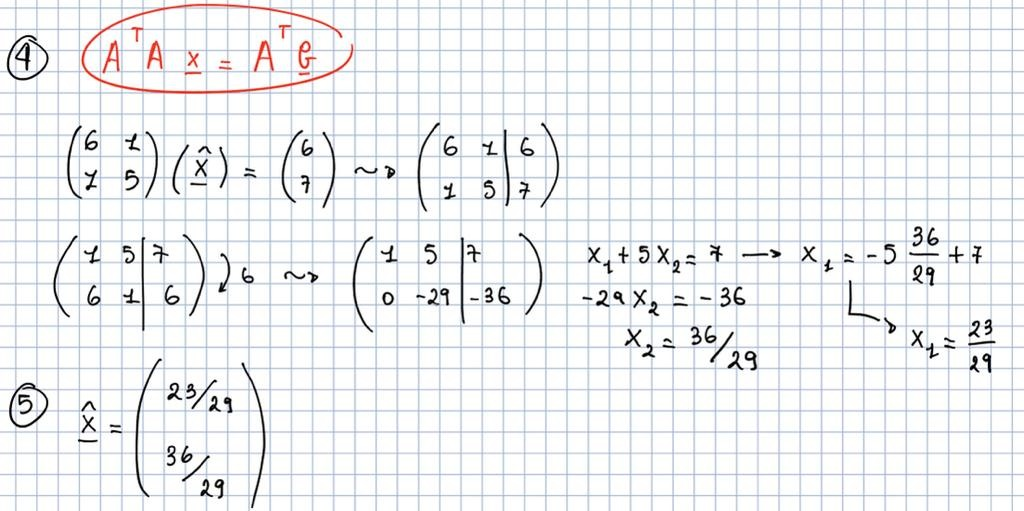 ④ AᵀA x̲ = Aᵀ b̲
(6 1; 1 5) (x̲̂) = (6; 7) ⤳ (6 1 | 6; 1 5 | 7)
(1 5 | 7; 6 1 | 6) 6 ⤳ (1 5 | 7; 0 -29 | -36)
x₁ + 5x₂ = 7 → x₁ = -5 36/29 + 7
-29x₂ = -36
x₂ = 36/29
↳ x₁ = 23/29
⑤ x̲̂ = (23/29; 36/29)